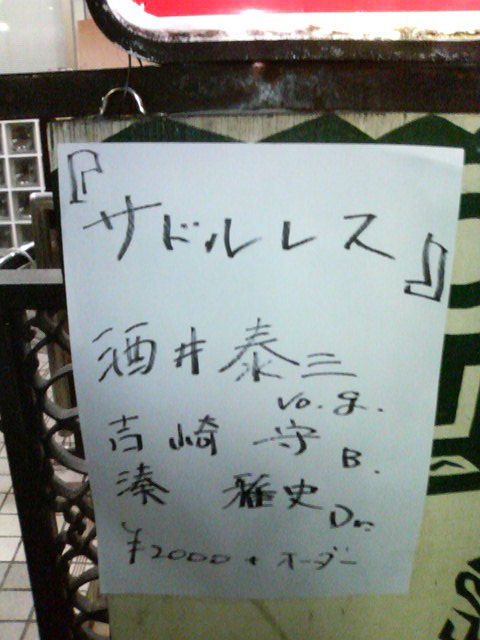 『サドルレス』
酒井泰三
vo.g.
吉崎 守 B.
湊 雅史 Dr.
¥2000+オーダー